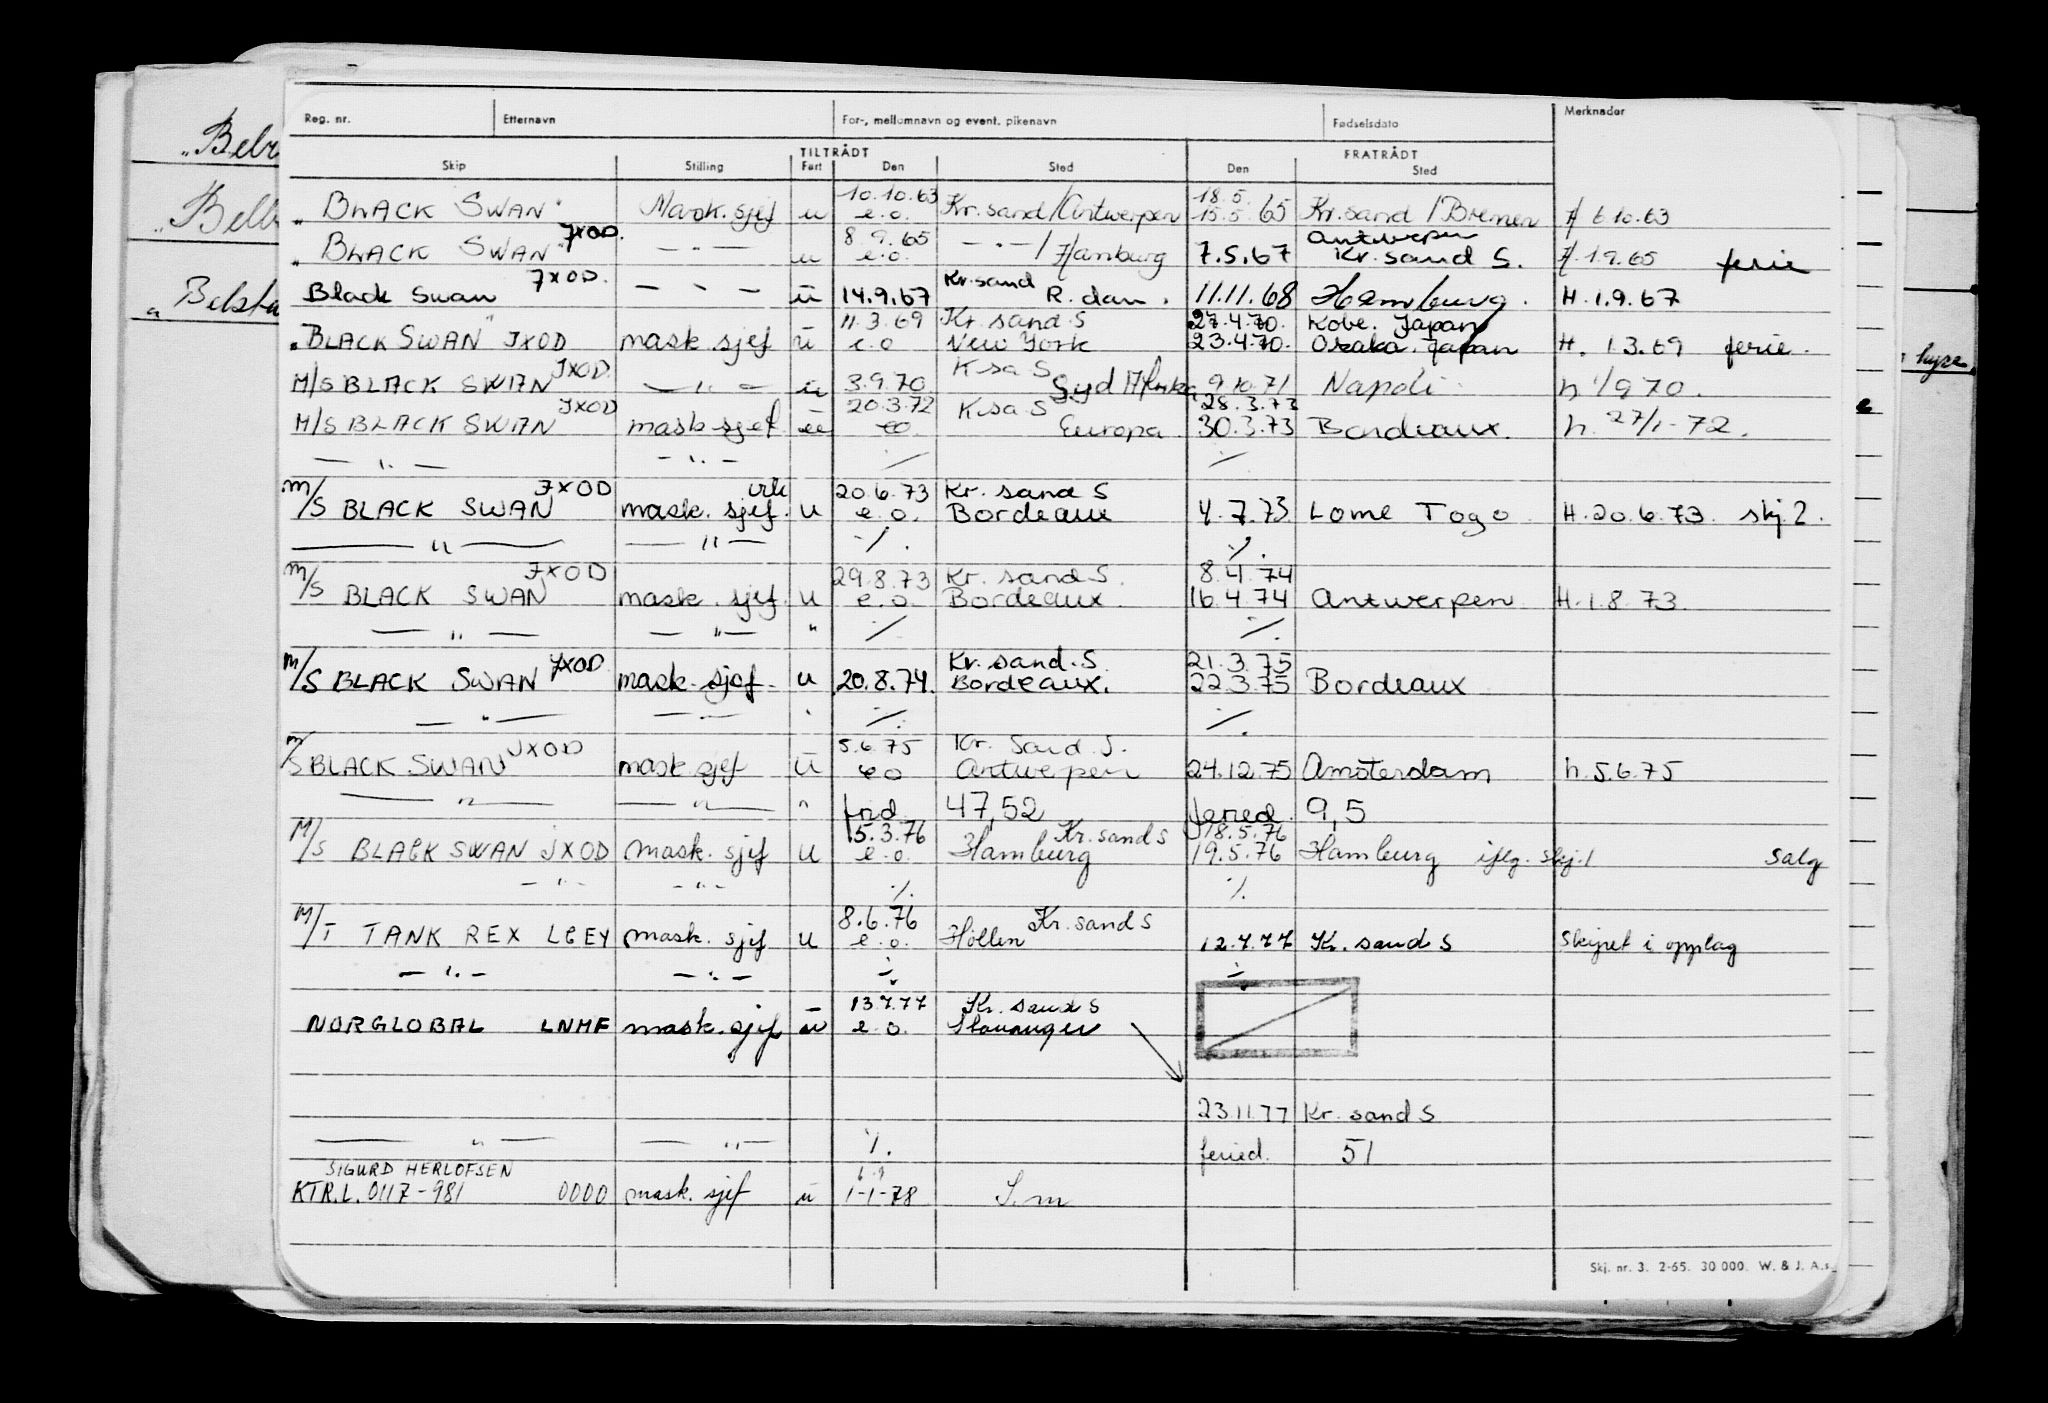 Reg. nr. Etternavn For-, mellomnavn og event. pikenavn Fødselsdato Merknader
TILTRÅDT FRATRÅDT
Skip Stilling Fart Den Sted Den Sted
"Belst
10.10.63 18.5.
„ BLACK SWAN" Mask. sjef u e.o. Kr.sand/Antwerpen 15.5.65 Kr.sand / Bremen H 6.10.63
JXOD. 8.9.65 Antwerpen
„ BLACK SWAN" — . — u e.o. — . — / Hamburg 7.5.67 Kr. sand S. H. 1.9.65 ferie
JXOD. Kr.sand
Black Swan — " — u 14.9.67 R.dam. 11.11.68 Hamburg. H. 1.9.67
11.3.69 Kr. sand S 27.4.70. Kobe. Japan
"BLACK SWAN" JXOD mask. sjef u e.o New York 23.4.70. Osaka. Japan H. 1.3.69 ferie.
JXOD. K sa S
M/S BLACK SWAN — " — u 3.9.70 Syd Afrika 9.10.71 Napoli h 1/9 70.
JXOD 20.3.72 K.sa S 28.3.73
M/S BLACK SWAN mask sjef. u eo Europa 30.3.73 Bordeaux. h. 27/1-72.
— " — — " — ٪ ٪
JXOD vik 20.6.73 Kr. sand S
m/S BLACK SWAN mask. sjef. u e.o. Bordeaux 4.7.73 Lome Togo H.20.6.73. skj 2.
— " — — " — ٪. ٪.
JXOD 29.8.73 Kr. sand S. 8.4.74
m/S BLACK SWAN mask. sjef. u e.o. Bordeaux. 16.4.74 Antwerpen H.1.8.73.
— " — — " — " ٪ ٪
JXOD Kr. sand. S 21.3.75
m/S BLACK SWAN mask. sjef. u 20.8.74. Bordeaux. 22.3.75 Bordeaux
— " — — " — ٪ ٪
JXOD 5.6.75 Kr. Sand S.
m/S BLACK SWAN mask sjef u eo Antwerpen 24.12.75 Amsterdam h.5.6.75
— " — — " — " 47,52 feried. 9,5
15.3.76 Kr. sand S 18.5.76
M/S BLACK SWAN JXOD mask. sjef u e.o. Hamburg 19.5.76 Hamburg iflg. skj.1 salg
— " — — " — ٪. ٪.
8.6.76 Kr. sand S
M/T TANK REX LCEY mask. sjef u e.o. Höllen 12.7.77 Kr. sand S Skipet i opplag
— " — — " — ٪ ٪
13.7.77 Kr. sand S
NORGLOBAL LNMF mask. sjef u e.o. Stavanger
23.11.77 Kr. sand S
— " — — " — ٪. feried. 51
SIGURD HERLOFSEN
KTR.L. 0117-981 0000 mask. sjef u 1-1-78 S.m
Skj. nr. 3. 2-65. 30 000. W. & J. A.s.